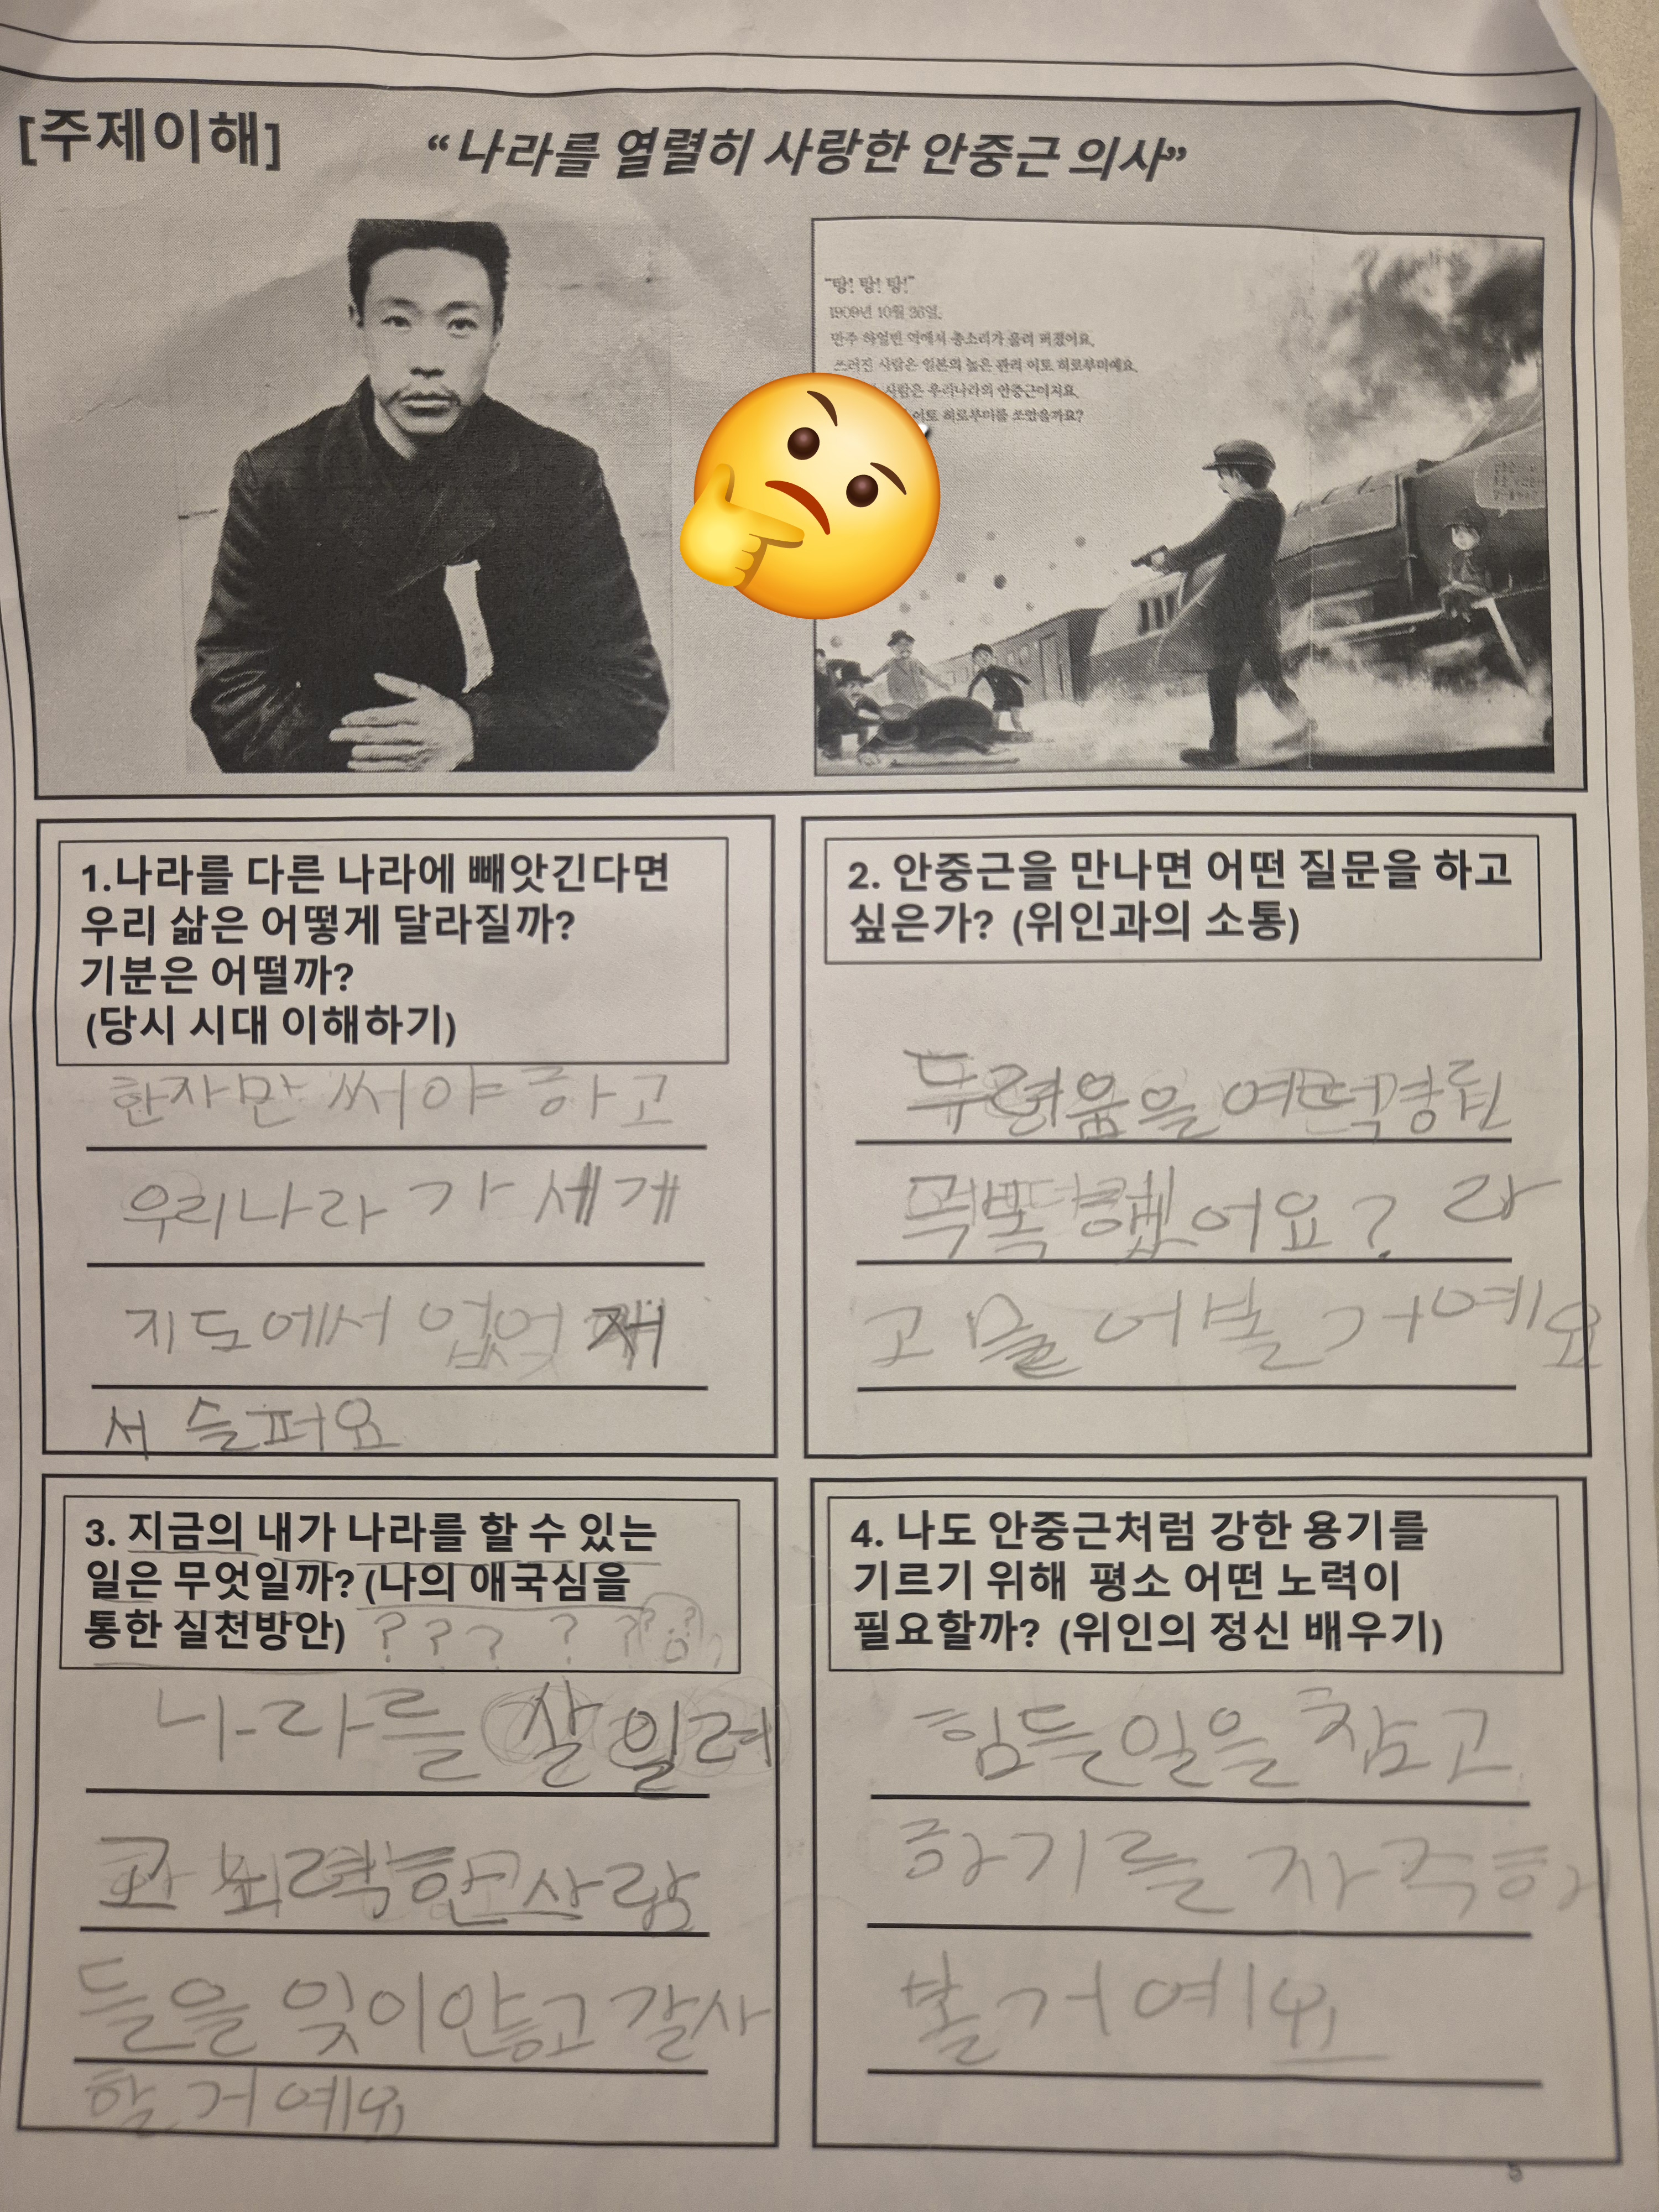 [주제이해]
“나라를 열렬히 사랑한 안중근 의사”
“탕! 탕! 탕!”
1909년 10월 26일.
만주 하얼빈 역에서 총소리가 울려 퍼졌어요.
쓰러진 사람은 일본의 높은 관리 이토 히로부미예요.
사람은 우리나라의 안중근이지요.
이토 히로부미를 쏘았을까요?
1.나라를 다른 나라에 빼앗긴다면
우리 삶은 어떻게 달라질까?
기분은 어떨까?
(당시 시대 이해하기)
한자만 써야 하고
우리나라가 세개
지도에서 없엊
서 슬퍼요
2. 안중근을 만나면 어떤 질문을 하고
싶은가? (위인과의 소통)
두려움을
어요? 라
고 물어볼거예요
3. 지금의 내가 나라를 할 수 있는
일은 무엇일까? (나의 애국심을
통한 실천방안)
? ? ? ? ? ?
나라를 살일려
고 뇌력한 사람
들을 잊이안고 갈사
할거예요
4. 나도 안중근처럼 강한 용기를
기르기 위해 평소 어떤 노력이
필요할까? (위인의 정신 배우기)
힘든일을 참고
하기를 자주해
볼거예요
5